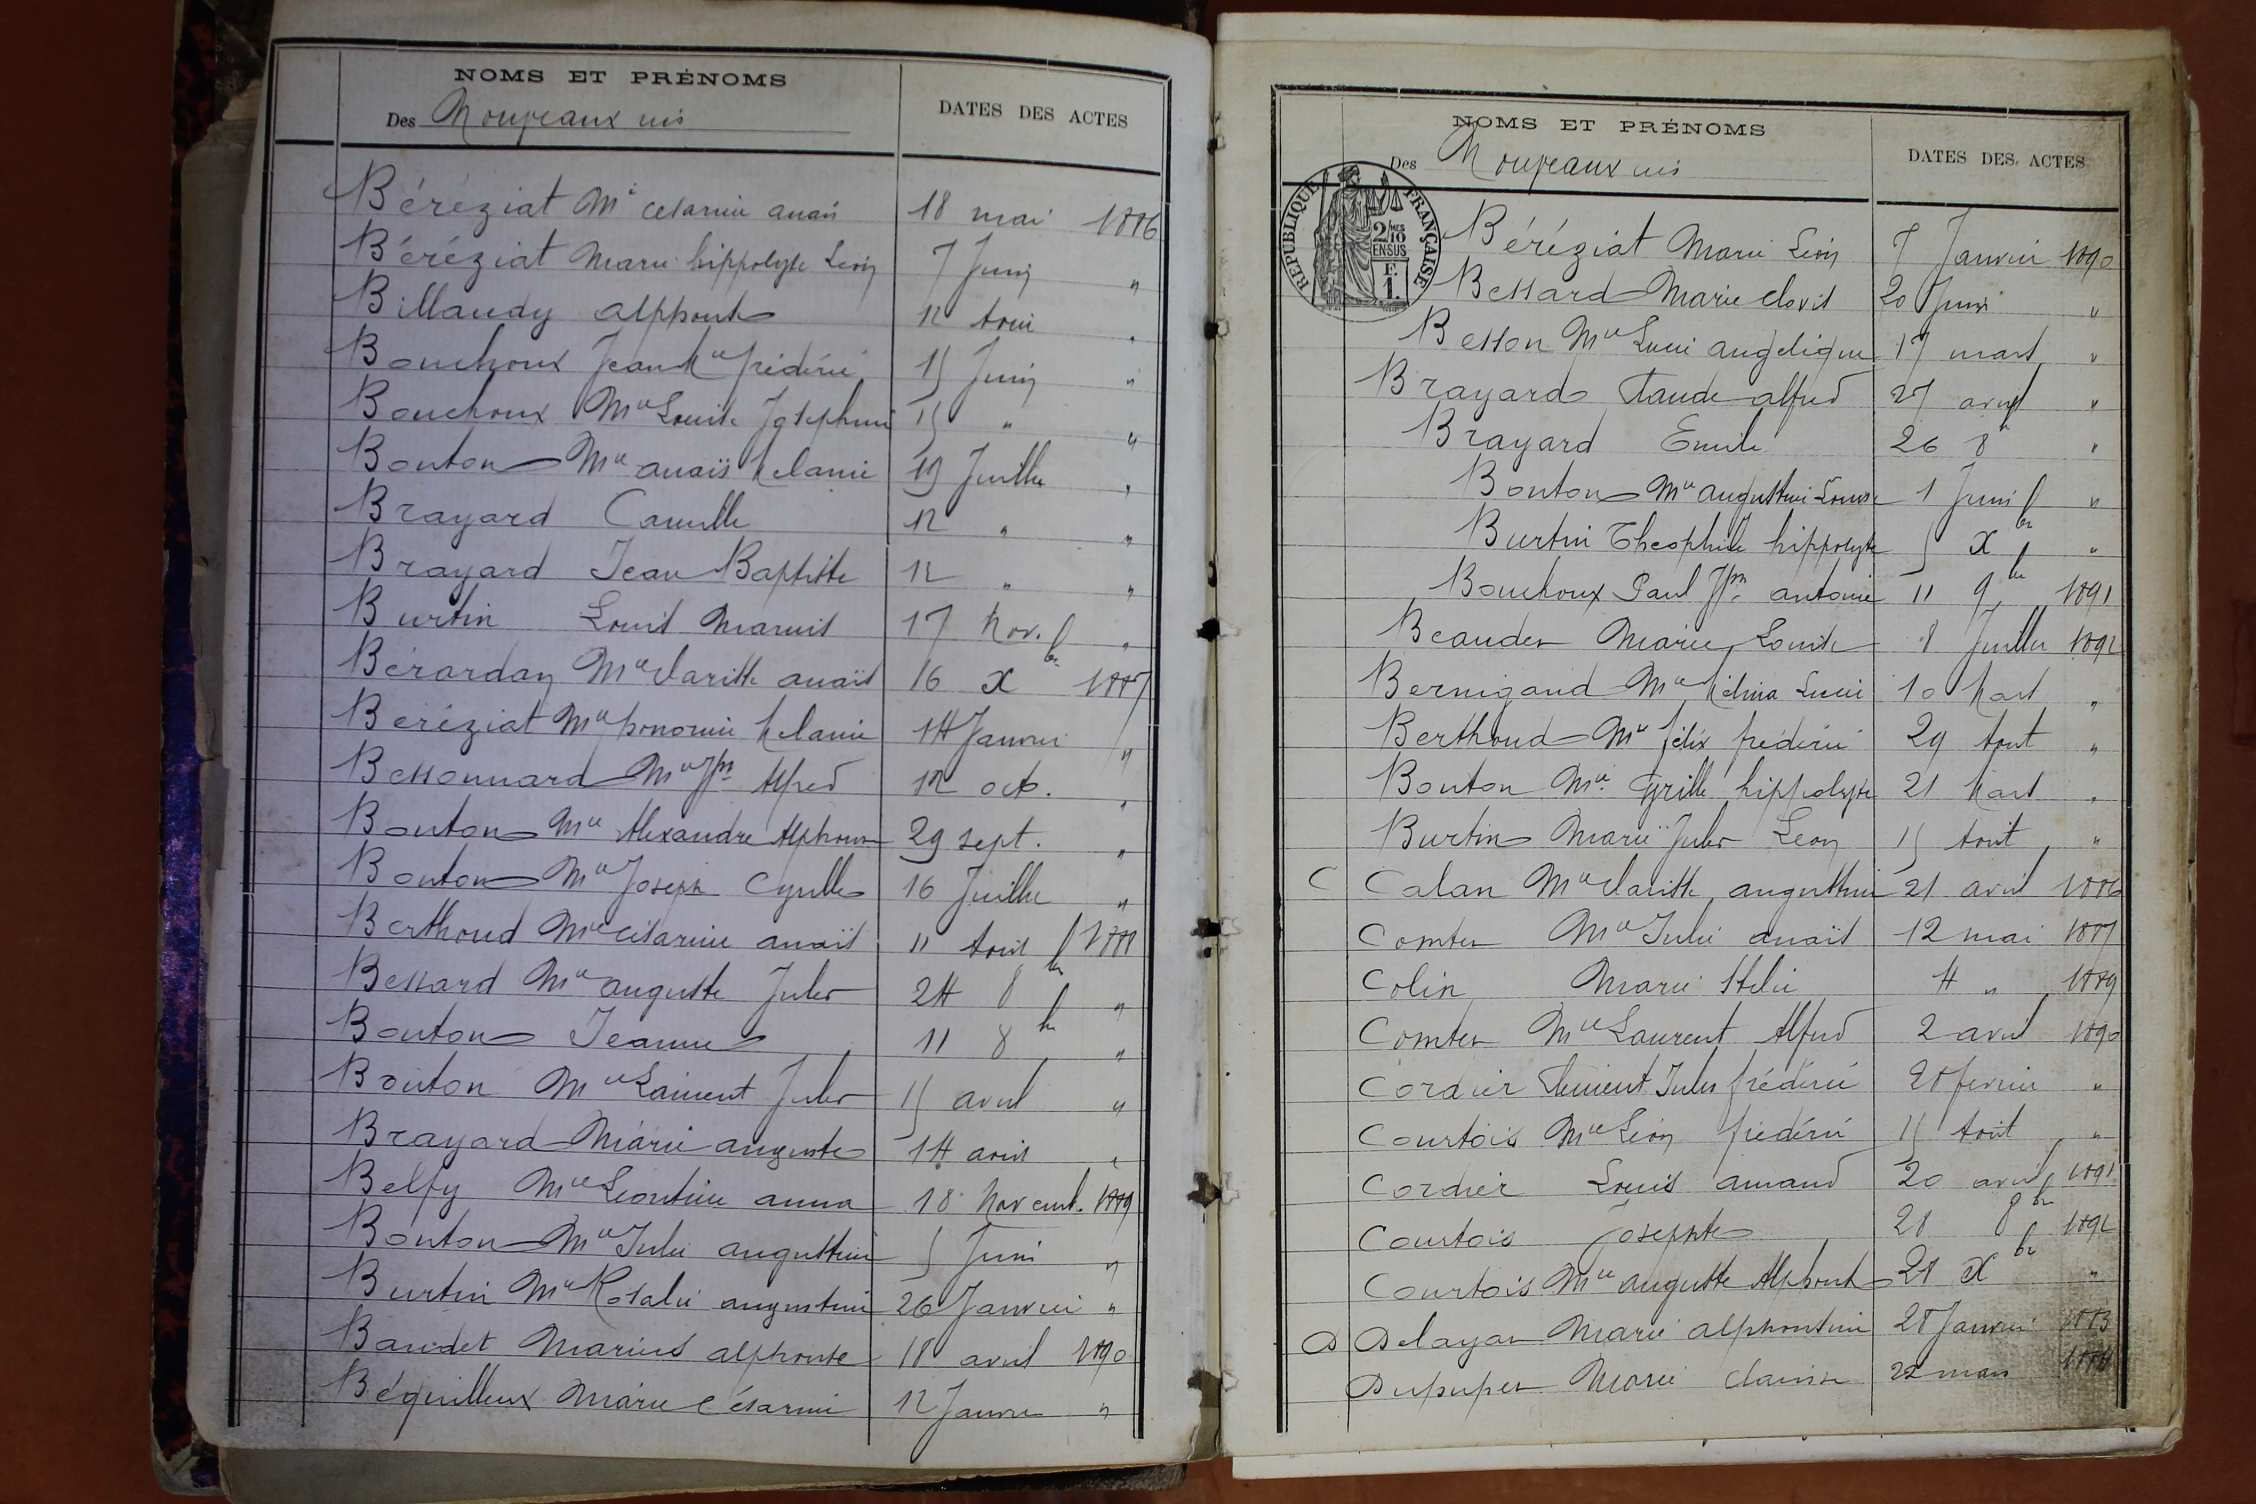 NOMS ET PRÉNOMS
Des Nouveaux nés
DATES DES ACTES
Béréziat Mie césarine anaïs 18 mai 1886
Béréziat Marie hippolyte Léon 7 Juin "
Billaudy alphonse 12 Aout "
Bouchoux Jean Mie frédéric 15 Juin "
Bouchoux Mie Louise Joséphine 15 " "
Bouton Mie anaïs Mélanie 19 Juillet "
Brayard Camille 12 " "
Brayard Jean Baptiste 12 " "
Burtin Louis Marius 17 Nov. "
Bérardan Mie Clarisse anaïs 16 Xbre 1887
Béréziat Mie honorine Mélanie 14 Janvier "
Bessonnard Mie Jph Alfred 12 oct. "
Bouton Mie Alexandre Alphonse 29 sept. "
Bouton Mie Joseph Cyrille 16 Juillet "
Berthoud Mie césarine anaïs 11 Aout 1888
Bessard Mie auguste Jules 24 8bre "
Bouton Jeanne 11 8bre "
Bouton Mie Laurent Jules 15 avril "
Brayard Marie auguste 14 aout "
Belfy Mie Léontine anna 18 Novemb. 1889
Bouton Mie Julie augustine 5 Juin "
Burtin Mie Rosalie augustine 26 Janvier "
Baudet Marius alphonse 18 avril 1890
Béquilleux Marie Césarine 12 Janvier "
NOMS ET PRÉNOMS
Des Nouveaux nés
DATES DES ACTES
RÉPUBLIQUE FRANÇAISE
2/10MES
EN SUS
Fc
1.
Béréziat Marie Léon 7 Janvier 1890
Bessard Marie Clovis 20 Juin "
Besson Mie Lucie angélique 17 mars "
Brayard Claude alfred 27 avril "
Brayard Emile 26 8bre "
Bouton Mie augustine Louise 1 Juin "
Burtin Théophile hippolyte 5 Xbre "
Bouchoux Paul Jph antoine 11 9bre 1891
Beaudet Marie Louise 8 Juillet 1892
Bernigaud Mie Mélina Lucie 10 Mars "
Berthoud Mie félix frédéric 29 Aout "
Bouton Mie Cyrille hippolyte 21 Mars "
Burtin Marie Jules Léon 15 Aout "
C Calan Mie Clarisse augustine 21 avril 1886
Comter Mie Julie anaïs 12 mai 1887
Colin Marie Stélie 4 " 1889
Comter Mie Laurent Alfred 2 avril 1890
Cordier Clément Jules frédéric 28 fevrier "
Courtois Mie Léon frédéric 15 Aout "
Cordier Louis amand 20 avril 1891
Courtois Josephte 28 8bre 1892
Courtois Mie auguste Alphonse 28 Xbre "
D Delayat Marie alphonsine 28 Janvier 1883
Dupuper Marie Clarisse 22 mars 1884